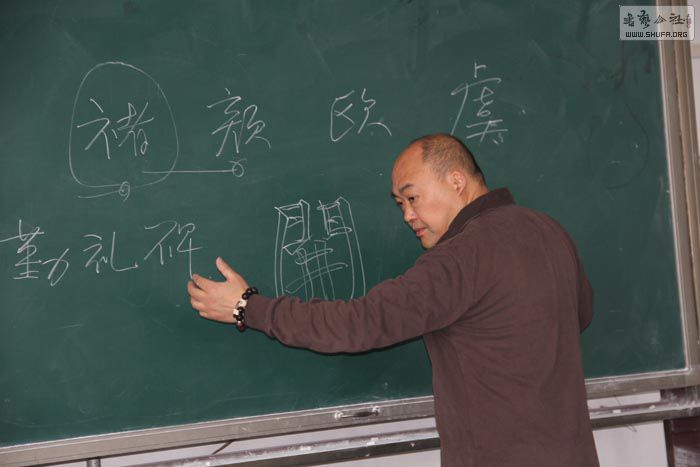 書藝公社
WWW.SHUFA.ORG
褚 颜 欧 虞
勤礼碑 開